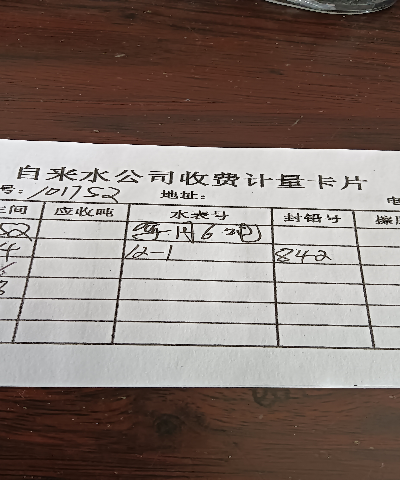 自来水公司收费计量卡片
号: 101752 地址: 电
间 应收吨 水表号 封铅号
52
4 12-1 842
8